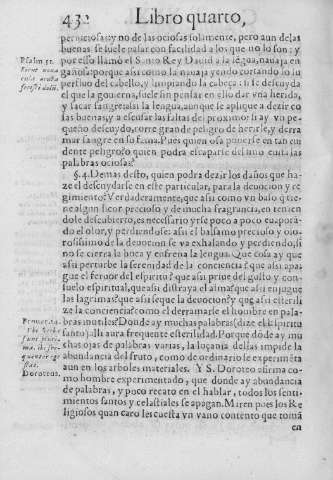 432 Libro quarto,
perniciosas: y no de las ociosas solamente, pero aun de las
buenas se suele pasar con facilidad a los que no lo son: y
Psalm 51. por esso llamó el Santo Rey David a la lẽgua, nauaja en
gañosa: porque asi como la nauaja yendo cortando lo su
perfluo del cabello, y limpiando la cabeça: si se descuyda
el que la gouierna, suele sin pensar en ello dar vna herida,
y sacar sangre: asi la lengua, aunque le aplique a dezir co
sas buenas, y a escusar las faltas del proximo: si ay vn pe-
queño descuydo, corre grande peligro de herirle, y derra
mar sangre en su fama. Pues quien osa ponerse en tan eui
dente peligro: o quien podra escaparse del, sino euita las
palabras ociosas?
§. 4. Demas desto, quien podra dezir los daños que ha-
ze el descuydarse en este particular, para la deuocion y re
gimiento? Verdaderamente, que asi como vn baso q̃ tie-
ne algun licor precioso y de mucha fragrancia, en tenien
dole descubierto, es necessario yrse poco a poco euaporã-
do el olor, y perdiendose: asi el balsamo precioso y olo-
rosissimo de la deuocion se va exhalando y perdiendo, si
no se cierra la boca y enfrena la lengua. Que cosa ay que
asi perturbe la serenidad de la conciencia? que asi apa-
gue el feruor del espiritu? que asi priue del gusto y con-
suelo espiritual, que asi distraya el alma? que asi enjugue
las lagrimas? que asi seque la deuocion? y que asi esterili-
ze la conciencia? como el derramarse el hombre en pala-
bras inutiles? Donde ay muchas palabras (dize el Espiritu
santo) alli aura frequente esterilidad. Porque dõde ay mu
chas ojas de palabras varias, la loçania dellas impide la
abundancia del fruto, como de ordinario le experimẽta
aun en los arboles materiales. Y S. Doroteo afirma co-
Doroteus. mo hombre experimentado, que donde ay abundancia
de palabras, y poco recato en el hablar, todos los senti-
mientos santos y celestiales se apagan. Miren pues los Re
ligiosos quan caro les cuesta vn vano contento que tomã
en